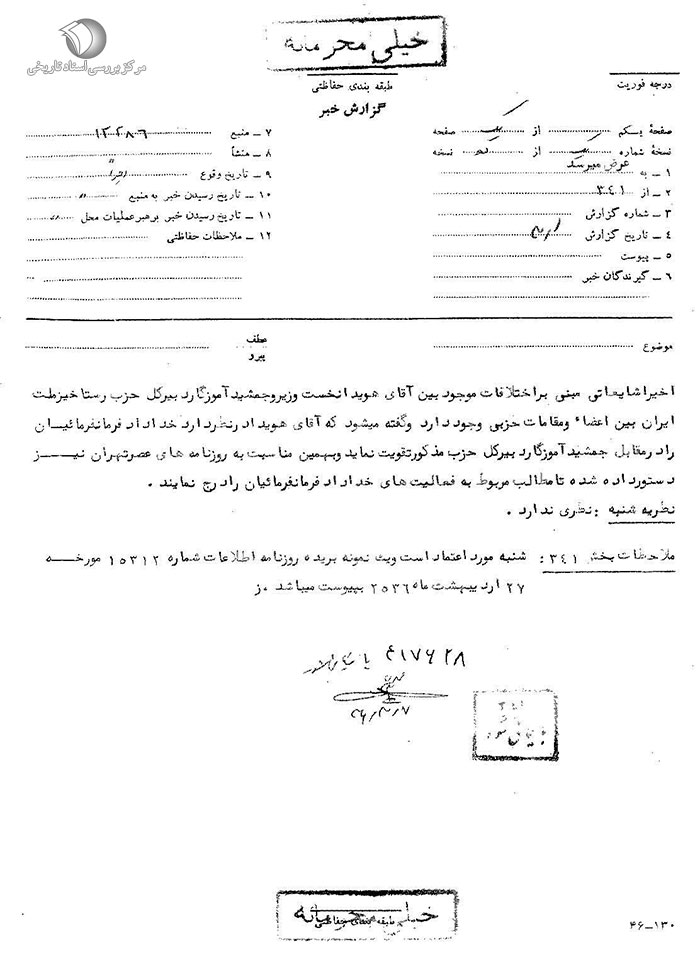 خیلی محرمانه
مرکز بررسی اسناد تاریخی
طبقه بندی حفاظتی
درجه فوریت
گزارش خبر
صفحهٔ یکم از یک صفحه
نسخهٔ شماره از نسخه
۱ ـ به عرض میرسد
۲ ـ از ۳۴۱
۳ ـ شماره گزارش
۴ ـ تاریخ گزارش
۵ ـ پیوست
۶ ـ گیرندگان خبر
۷ ـ منبع ۱۲۲۸۶
۸ ـ منشأ
۹ ـ تاریخ وقوع اخیراً
۱۰ ـ تاریخ رسیدن خبر به منبع
۱۱ ـ تاریخ رسیدن خبر برهبر عملیات محل
۱۲ ـ ملاحظات حفاظتی
موضوع
عطف
پیرو
اخیرا شایعاتی مبنی بر اختلافات موجود بین آقای هویدا نخست وزیر و جمشید آموزگار دبیرکل حزب رستاخیز ملت
ایران بین اعضاء و مقامات حزبی وجود دارد و گفته میشود که آقای هویدا در نظر دارد خداداد فرمانفرمائیان
را در مقابل جمشید آموزگار دبیرکل حزب مذکور تقویت نماید و بهمین مناسبت به روزنامه های عصر تهران نیــز
دستور داده شده تا مطالب مربوط به فعالیت های خداداد فرمانفرمائیان را درج نمایند .
نظریه شنبه : نظری ندارد .
ملاحظات بخش ۳۴۱ : شنبه مورد اعتماد است و یک نمونه بریده روزنامه اطلاعات شماره ۱۵۳۱۲ مورخــه
۲۷ اردیبهشت ماه ۲۵۳۶ بپیوست میباشد . ز
۴۱۷۶۲۸
۳۶/۳/۷
۳۴۱
بایگانی شود
خیلی محرمانه
طبقه بندی حفاظتی
۴۶ــ۱۳۰